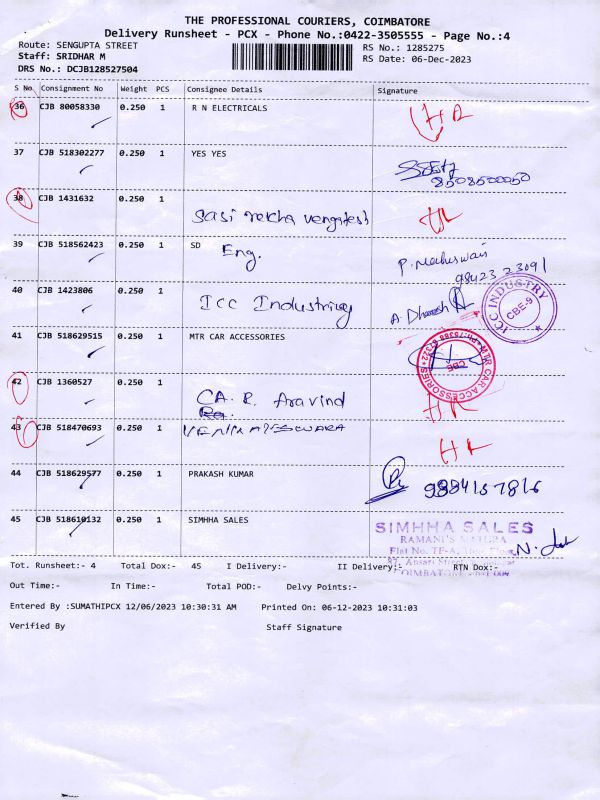 THE PROFESSIONAL COURIERS, COIMBATORE
Delivery Runsheet - PCX - Phone No.:0422-3505555 - Page No.:4
Route: SENGUPTA STREET RS No.: 1285275
Staff: SRIDHAR M RS Date: 06-Dec-2023
DRS No.: DCJB128527504
S No Consignment No Weight PCS Consignee Details Signature
36 CJB 80058330 0.250 1 R N ELECTRICALS
37 CJB 518302277 0.250 1 YES YES
8508500050
38 CJB 1431632 0.250 1 Sasi rekha vengatesh
39 CJB 518562423 0.250 1 SD Eng. P. Maheswari
98423 23091
40 CJB 1423806 0.250 1 ICC Industries A. Dhanesh
ICC INDUSTRY CBE-9
41 CJB 518629515 0.250 1 MTR CAR ACCESSORIES
MTR CAR ACCESSORIES CBE
42 CJB 1360527 0.250 1 CA. R. Aravind
43 CJB 518470693 0.250 1 VENKATESSWARA
44 CJB 518629577 0.250 1 PRAKASH KUMAR 9884157816
45 CJB 518610132 0.250 1 SIMHHA SALES SIMHHA SALES
RAMANI'S
Flat No. TF-A,
Ansari Street
COIMBATORE
Tot. Runsheet:- 4 Total Dox:- 45 I Delivery:- II Delivery:- RTN Dox:-
Out Time:- In Time:- Total POD:- Delvy Points:-
Entered By :SUMATHIPCX 12/06/2023 10:30:31 AM Printed On: 06-12-2023 10:31:03
Verified By Staff Signature